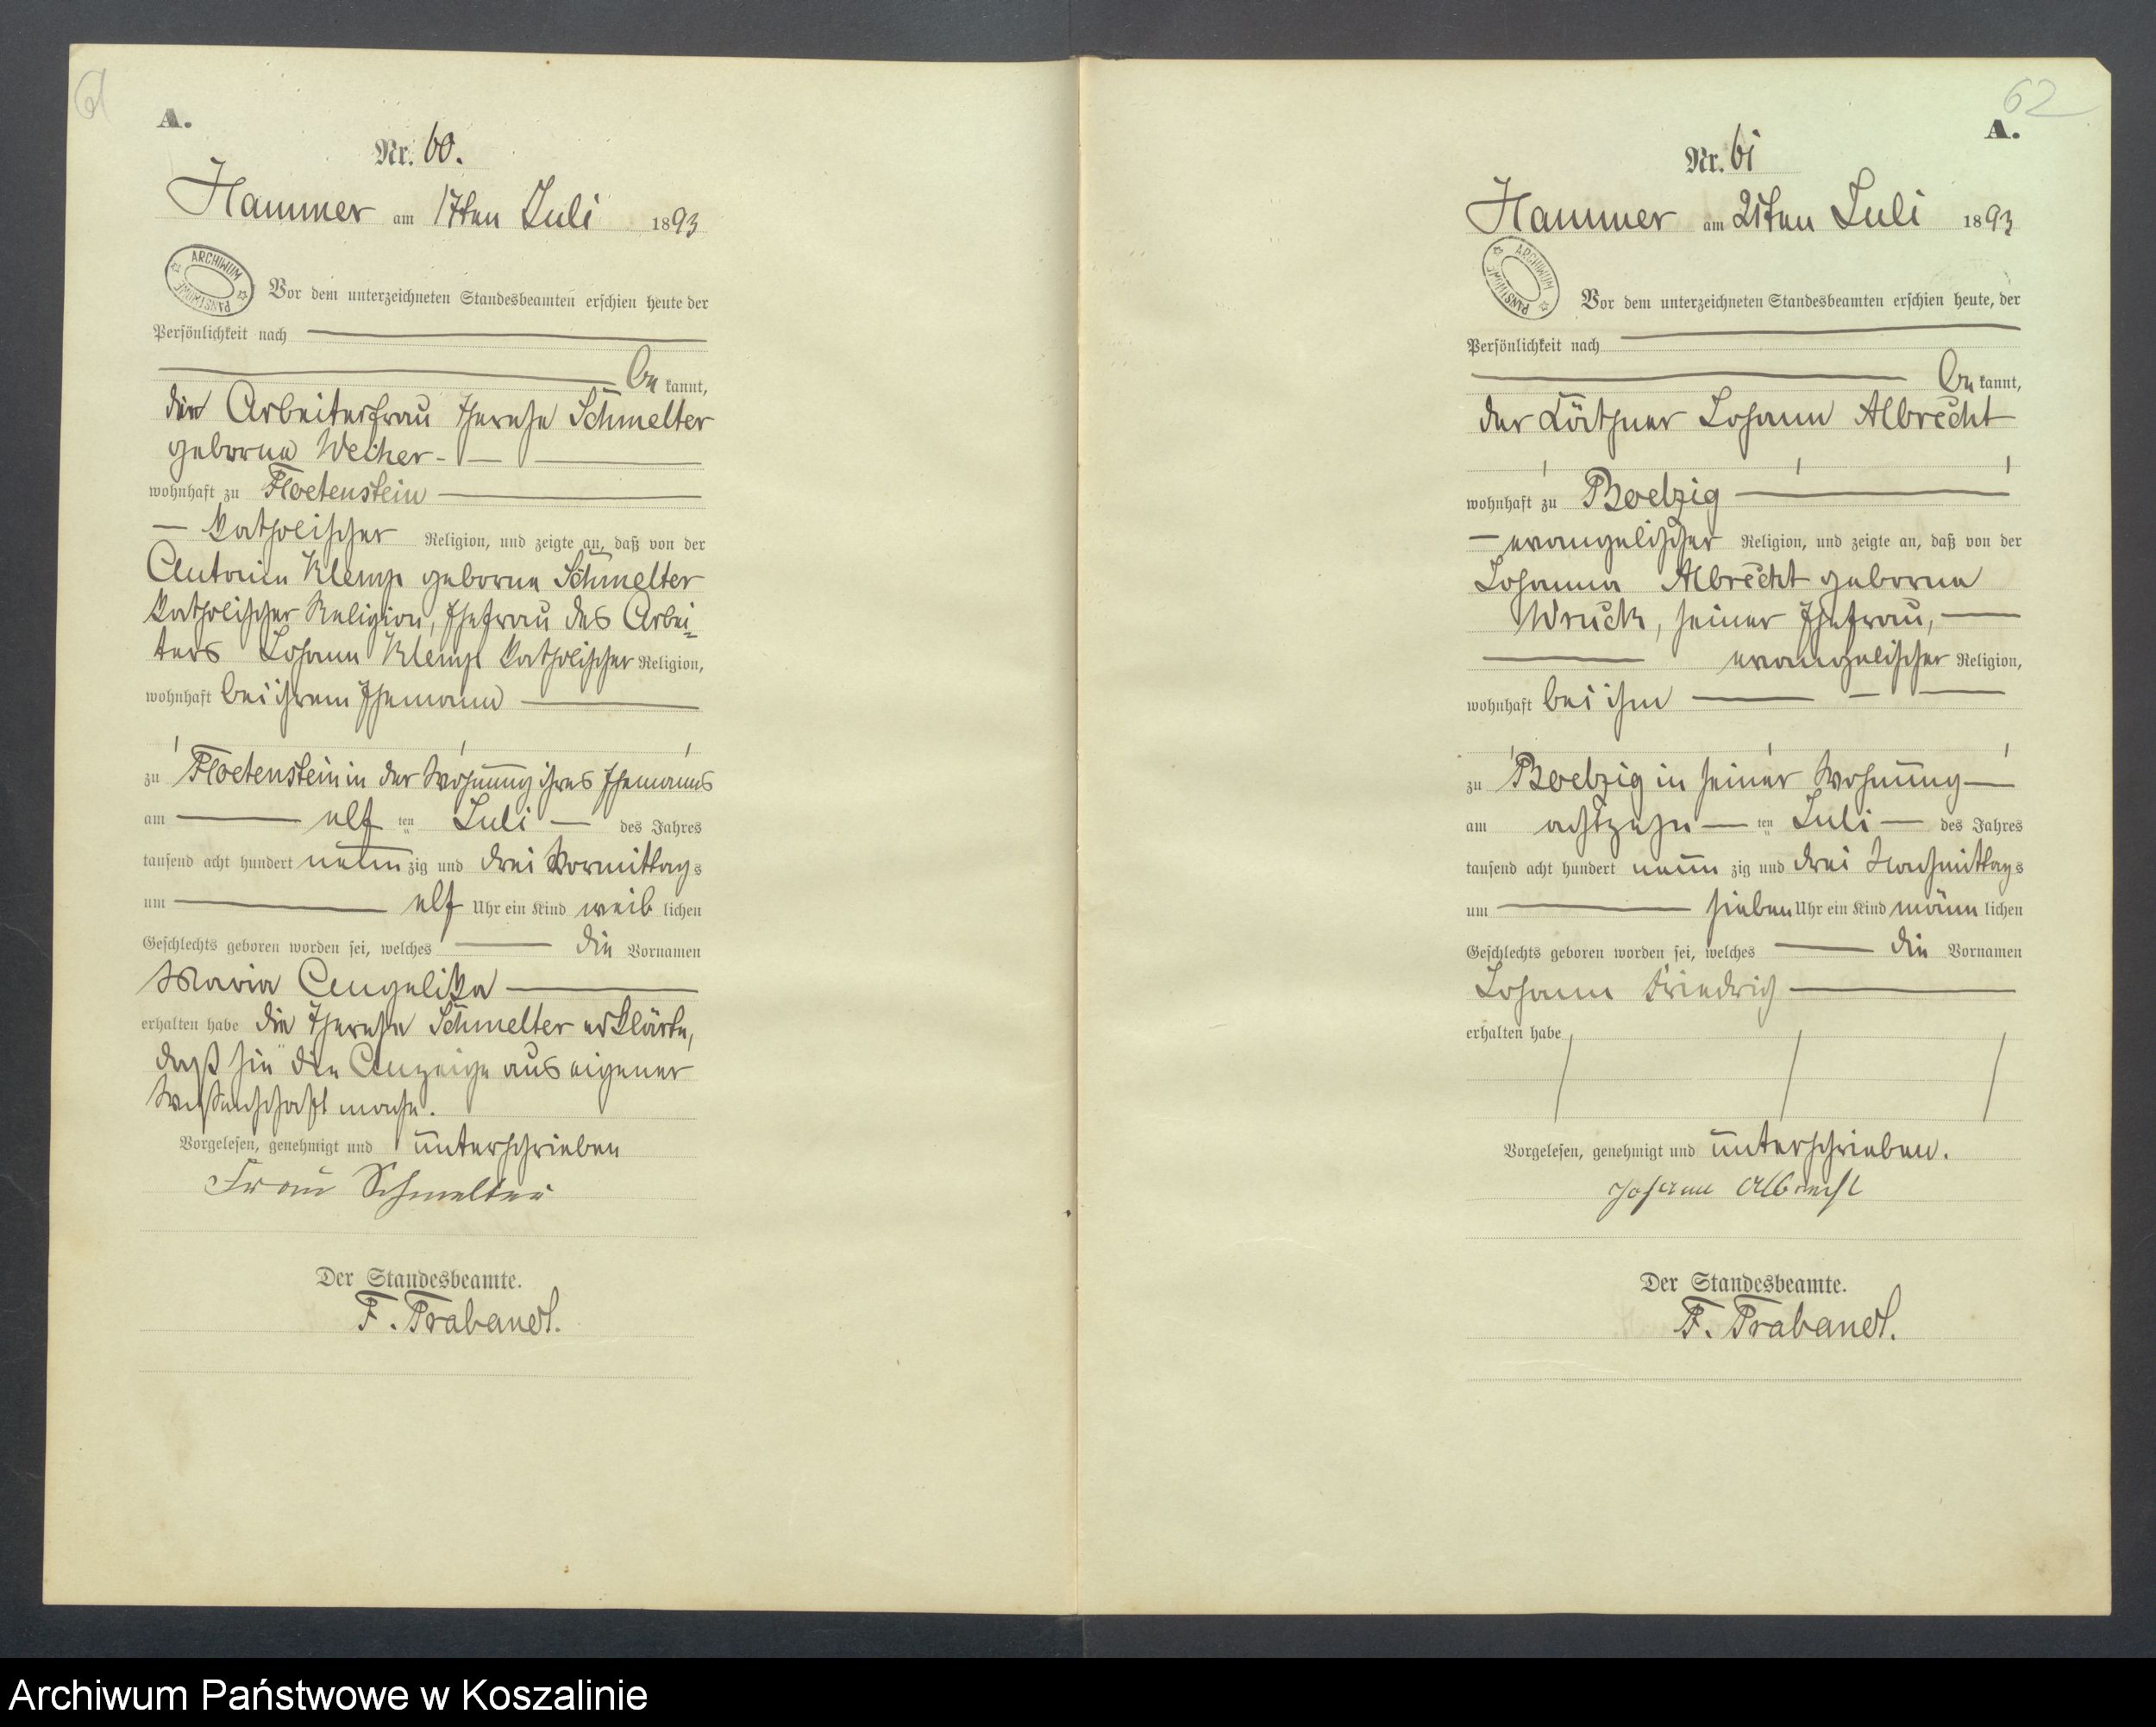 61
A.
Nr. 60.
Hammer am 17ten Juli 1893
ARCHIWUM PAŃSTWOWE
Vor dem unterzeichneten Standesbeamten erschien heute der
Persönlichkeit nach
be kannt,
die Arbeiterfrau Therese Schmelter
geborne Weiher
wohnhaft zu Floetenstein
katholischer Religion, und zeigte an, daß von der
Antonie Klemp geborne Schmelter
katholischer Religion, Ehefrau des Arbei-
ters Johann Klemp katholischer Religion,
wohnhaft bei ihrem Ehemann
zu Floetenstein in der Wohnung ihres Ehemanns
am elf ten Juli des Jahres
tausend acht hundert neun zig und drei Vormittags
um elf Uhr ein Kind weib lichen
Geschlechts geboren worden sei, welches die Vornamen
Maria Angelika
erhalten habe die Therese Schmelter erklärte,
daß sie die Anzeige aus eigener
Wissenschaft mache.
Vorgelesen, genehmigt und unterschrieben
Frau Schmelter
Der Standesbeamte.
F. Trabandt.
62
A.
Nr. 61
Hammer am 21ten Juli 1893
ARCHIWUM PAŃSTWOWE
Vor dem unterzeichneten Standesbeamten erschien heute, der
Persönlichkeit nach
be kannt,
der Käthner Johann Albrecht
wohnhaft zu Boelzig
evangelischer Religion, und zeigte an, daß von der
Johanna Albrecht geborne
Wruck, seiner Ehefrau,
evangelischer Religion,
wohnhaft bei ihm
zu Boelzig in seiner Wohnung
am achtzehn ten Juli des Jahres
tausend acht hundert neun zig und drei Nachmittags
um sieben Uhr ein Kind männ lichen
Geschlechts geboren worden sei, welches die Vornamen
Johann Friedrich
erhalten habe
Vorgelesen, genehmigt und unterschrieben.
Johann Albrecht
Der Standesbeamte.
F. Trabandt.
Archiwum Państwowe w Koszalinie